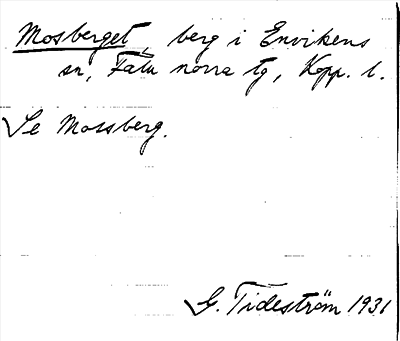 Mosberget, berg i Envikens
sn, Falu norra tg, Kopp. l.
Se Mossberg.
G. Tideström 1931